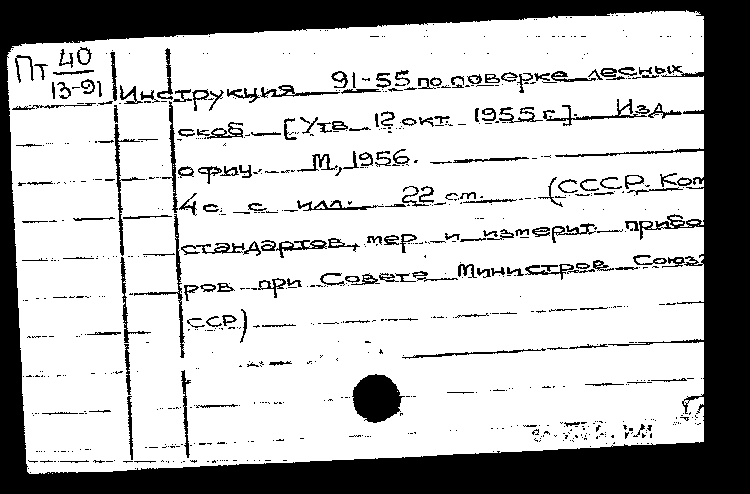 Пт 40
13-91
Инструкция 91-55 по поверке лесных
скоб. [Утв. 12 окт. 1955 г.]. Изд.
офиц. М., 1956.
4 с. с илл. 22 см. (СССР. Ком
стандартов, мер и измерит. прибо
ров при Совете Министров Союз
ССР)